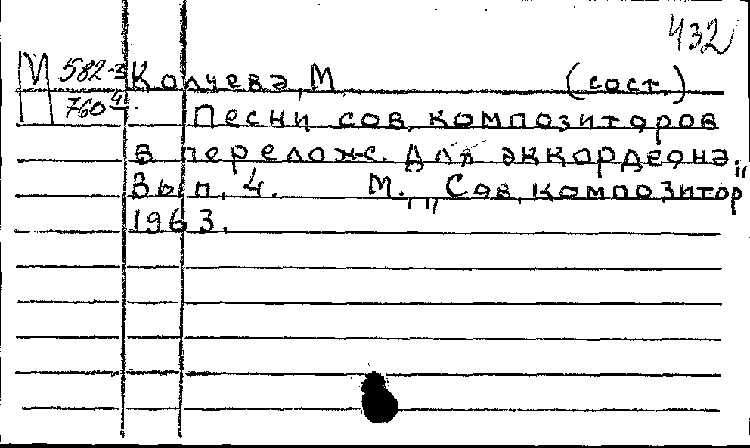 432
М 582-3 Колчева, М. (сост.)
760-4 Песни сов. композиторов
в перелож. для аккордеона.
Вып. 4. М., "Сов. композитор"
1963.